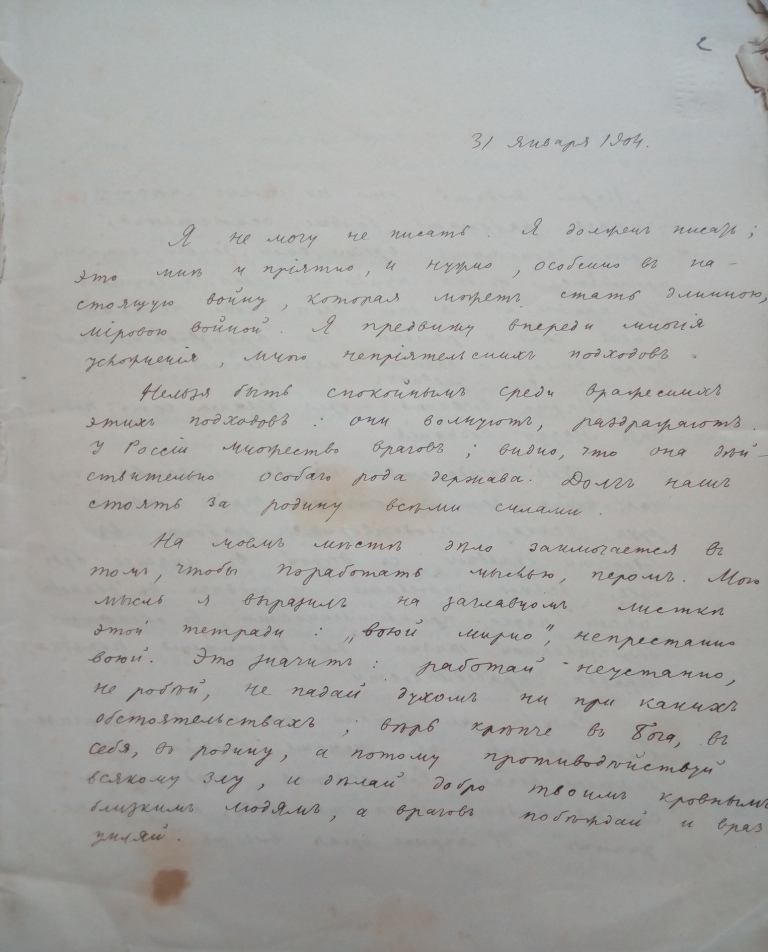 2
31 января 1904.
Я не могу не писать. Я долженъ писать;
это мнѣ и пріятно, и нужно, особенно въ на-
стоящую войну, которая можетъ стать длинною,
міровою войной. Я предвижу впереди многія
непріятельскихъ подходовъ.
Нельзя быть спокойнымъ среди вражескихъ
этихъ подходовъ: они волнуютъ, раздражаютъ.
У Россіи множество враговъ; видно, что она дѣй-
ствительно особаго рода держава. Долгъ нашъ
стоять за родину всѣми силами.
На моемъ мѣстѣ дѣло заключается въ
томъ, чтобы поработать мыслью, перомъ. Мою
мысль я выразилъ на заглавномъ листкѣ
этой тетради: „воюй мирно", непрестанно
воюй. Это значитъ: работай неустанно,
не робѣй, не падай духомъ ни при какихъ
обстоятельствахъ; вѣрь крѣпче въ Бога, въ
себя, въ родину, а потому противодѣйствуй
всякому злу, и дѣлай добро твоимъ кровнымъ
близкимъ людямъ, а враговъ побѣждай и враз
умляй.